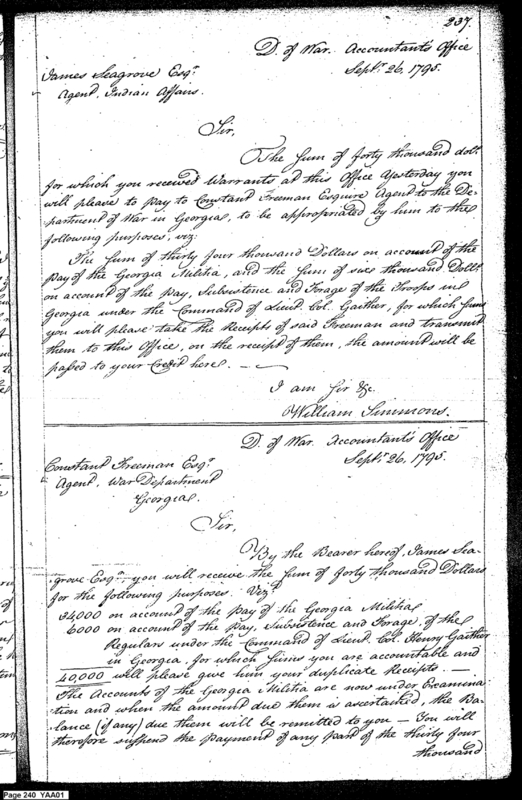 237.
D. of War. Accountant's Office
Sept.r 26, 1795.
James Seagrove Esq.r
Agent, Indian Affairs.
Sir,
The Sum of forty thousand doll.s
for which you received Warrants at this Office Yesterday you
will please to pay to Constant Freeman Esquire Agent to the De-
partment of War in Georgia, to be appropriated by him to the
following purposes, viz.
The Sum of thirty four thousand Dollars on account of the
Pay of the Georgia Militia, and the Sum of six thousand Doll.s
on account of the Pay, Subsistence and Forage of the Troops in
Georgia under the Command of Lieut. Col. Gaither, for which Sums
you will please take the Receipts of said Freeman and transmit
them to this Office, on the receipt of them, the amount will be
passed to your Credit here. —
I am Sir &c.
William Simmons.
D. of War. Accountant's Office
Sept.r 26, 1795.
Constant Freeman Esq.r
Agent, War Department
Georgia.
Sir,
By the Bearer hereof, James Sea-
grove Esq.r you will receive the Sum of forty thousand Dollars
for the following purposes. Viz.
34,000 on account of the Pay of the Georgia Militia
6000 on account of the Pay, Subsistence and Forage, of the
Regulars under the Command of Lieut. Col. Henry Gaither
in Georgia, for which Sums you are accountable and
40,000 will please give him your duplicate Receipts. —
The Accounts of the Georgia Militia are now under Examina-
tion and when the amount due them is ascertained, the Ba-
lance (if any) due them will be remitted to you — You will
therefore suspend the Payment of any part of the thirty four
thousand
Page 240 YAA01